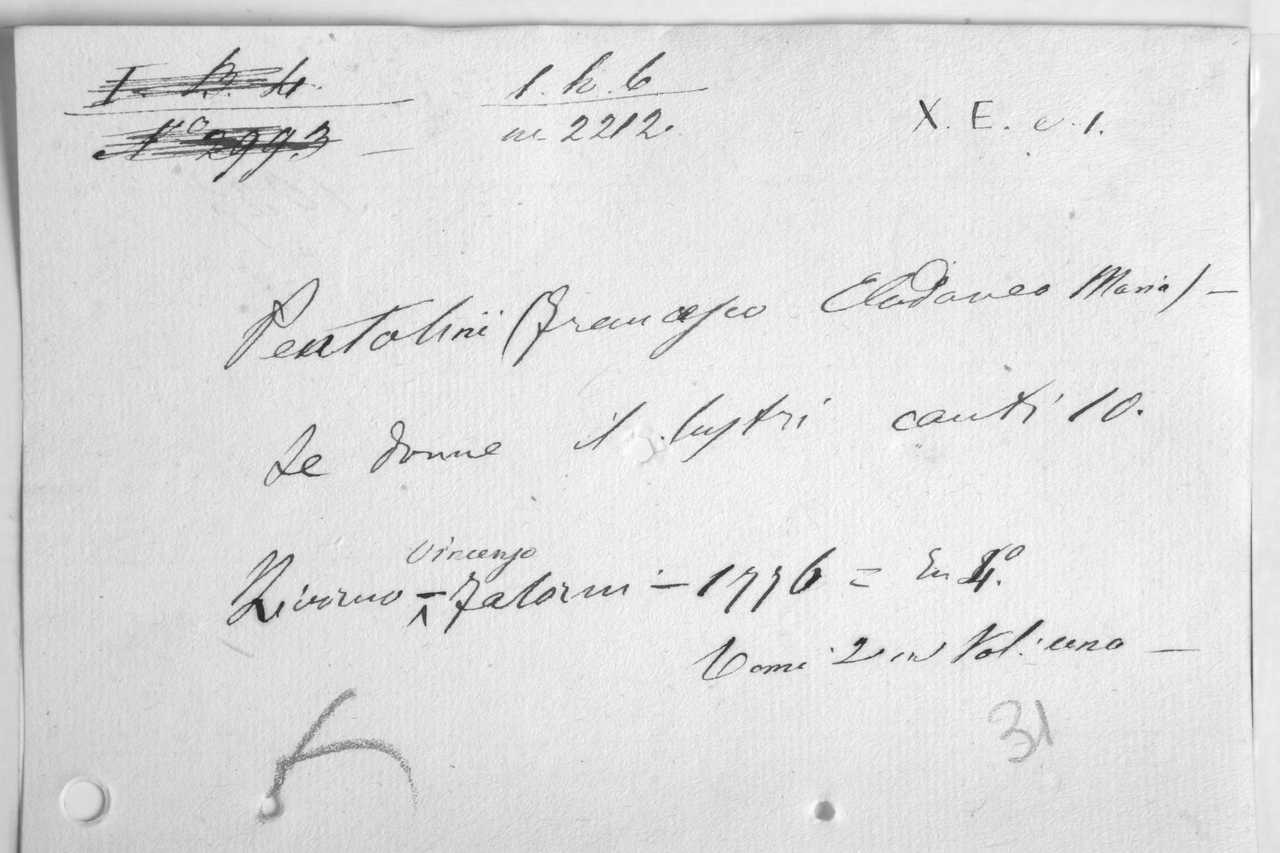 I. B. 4. 1. h. 6 X. E. e. 1.
N.o 2993 — nr. 2212.
Pentolini (Francesco Clodoveo Maria) —
Le donne illustri canti 10.
Vincenzo
Livorno – Falorni – 1776 = In 4.o
Tomi 2 in Vol: uno —
31